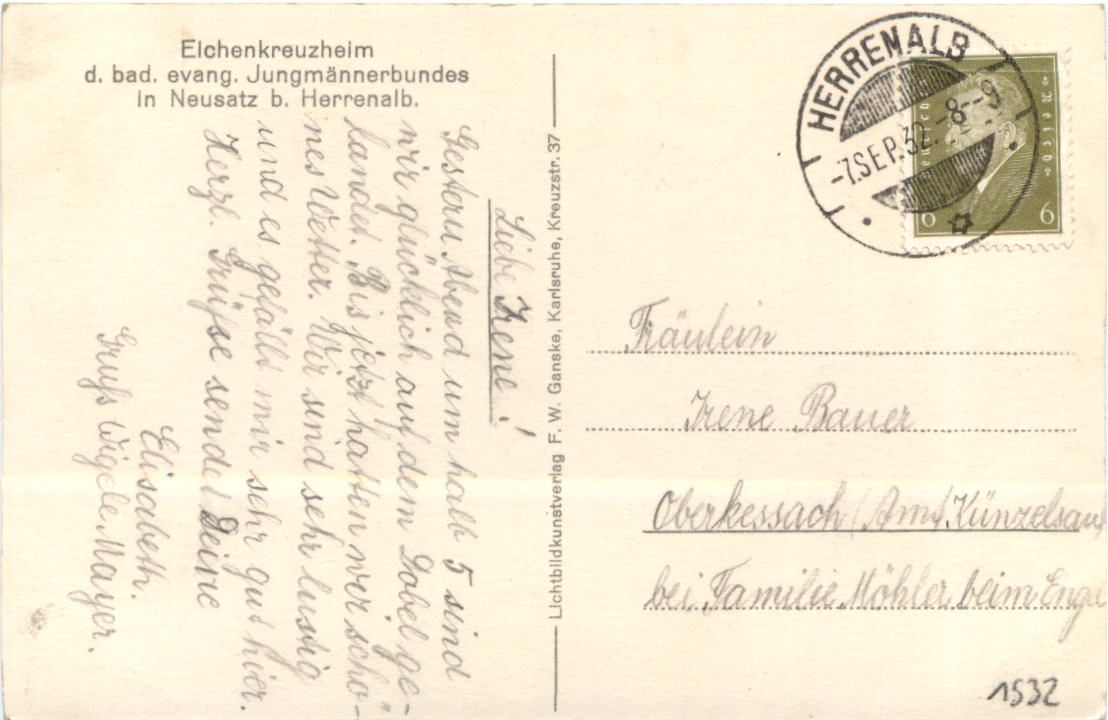 Eichenkreuzheim
d. bad. evang. Jungmännerbundes
in Neusatz b. Herrenalb.
Liebe Irene!
Gestern Abend um halb 5 sind
wir glücklich auf dem Dobel ge-
landet. Bis jetzt hatten wir schö-
nes Wetter. Wir sind sehr lustig
und es gefällt mir sehr gut hier.
Herzl. Grüße sendet Deine
Elisabeth.
Gruß Mayer.
Lichtbildkunstverlag F. W. Ganske, Karlsruhe, Kreuzstr. 37
HERRENALB
-7.SEP.32.-8--9
Reich
6 6
Fräulein
Irene Bauer
Oberkessach (Amt Künzelsau
bei Familie Möhler beim Engel
1532